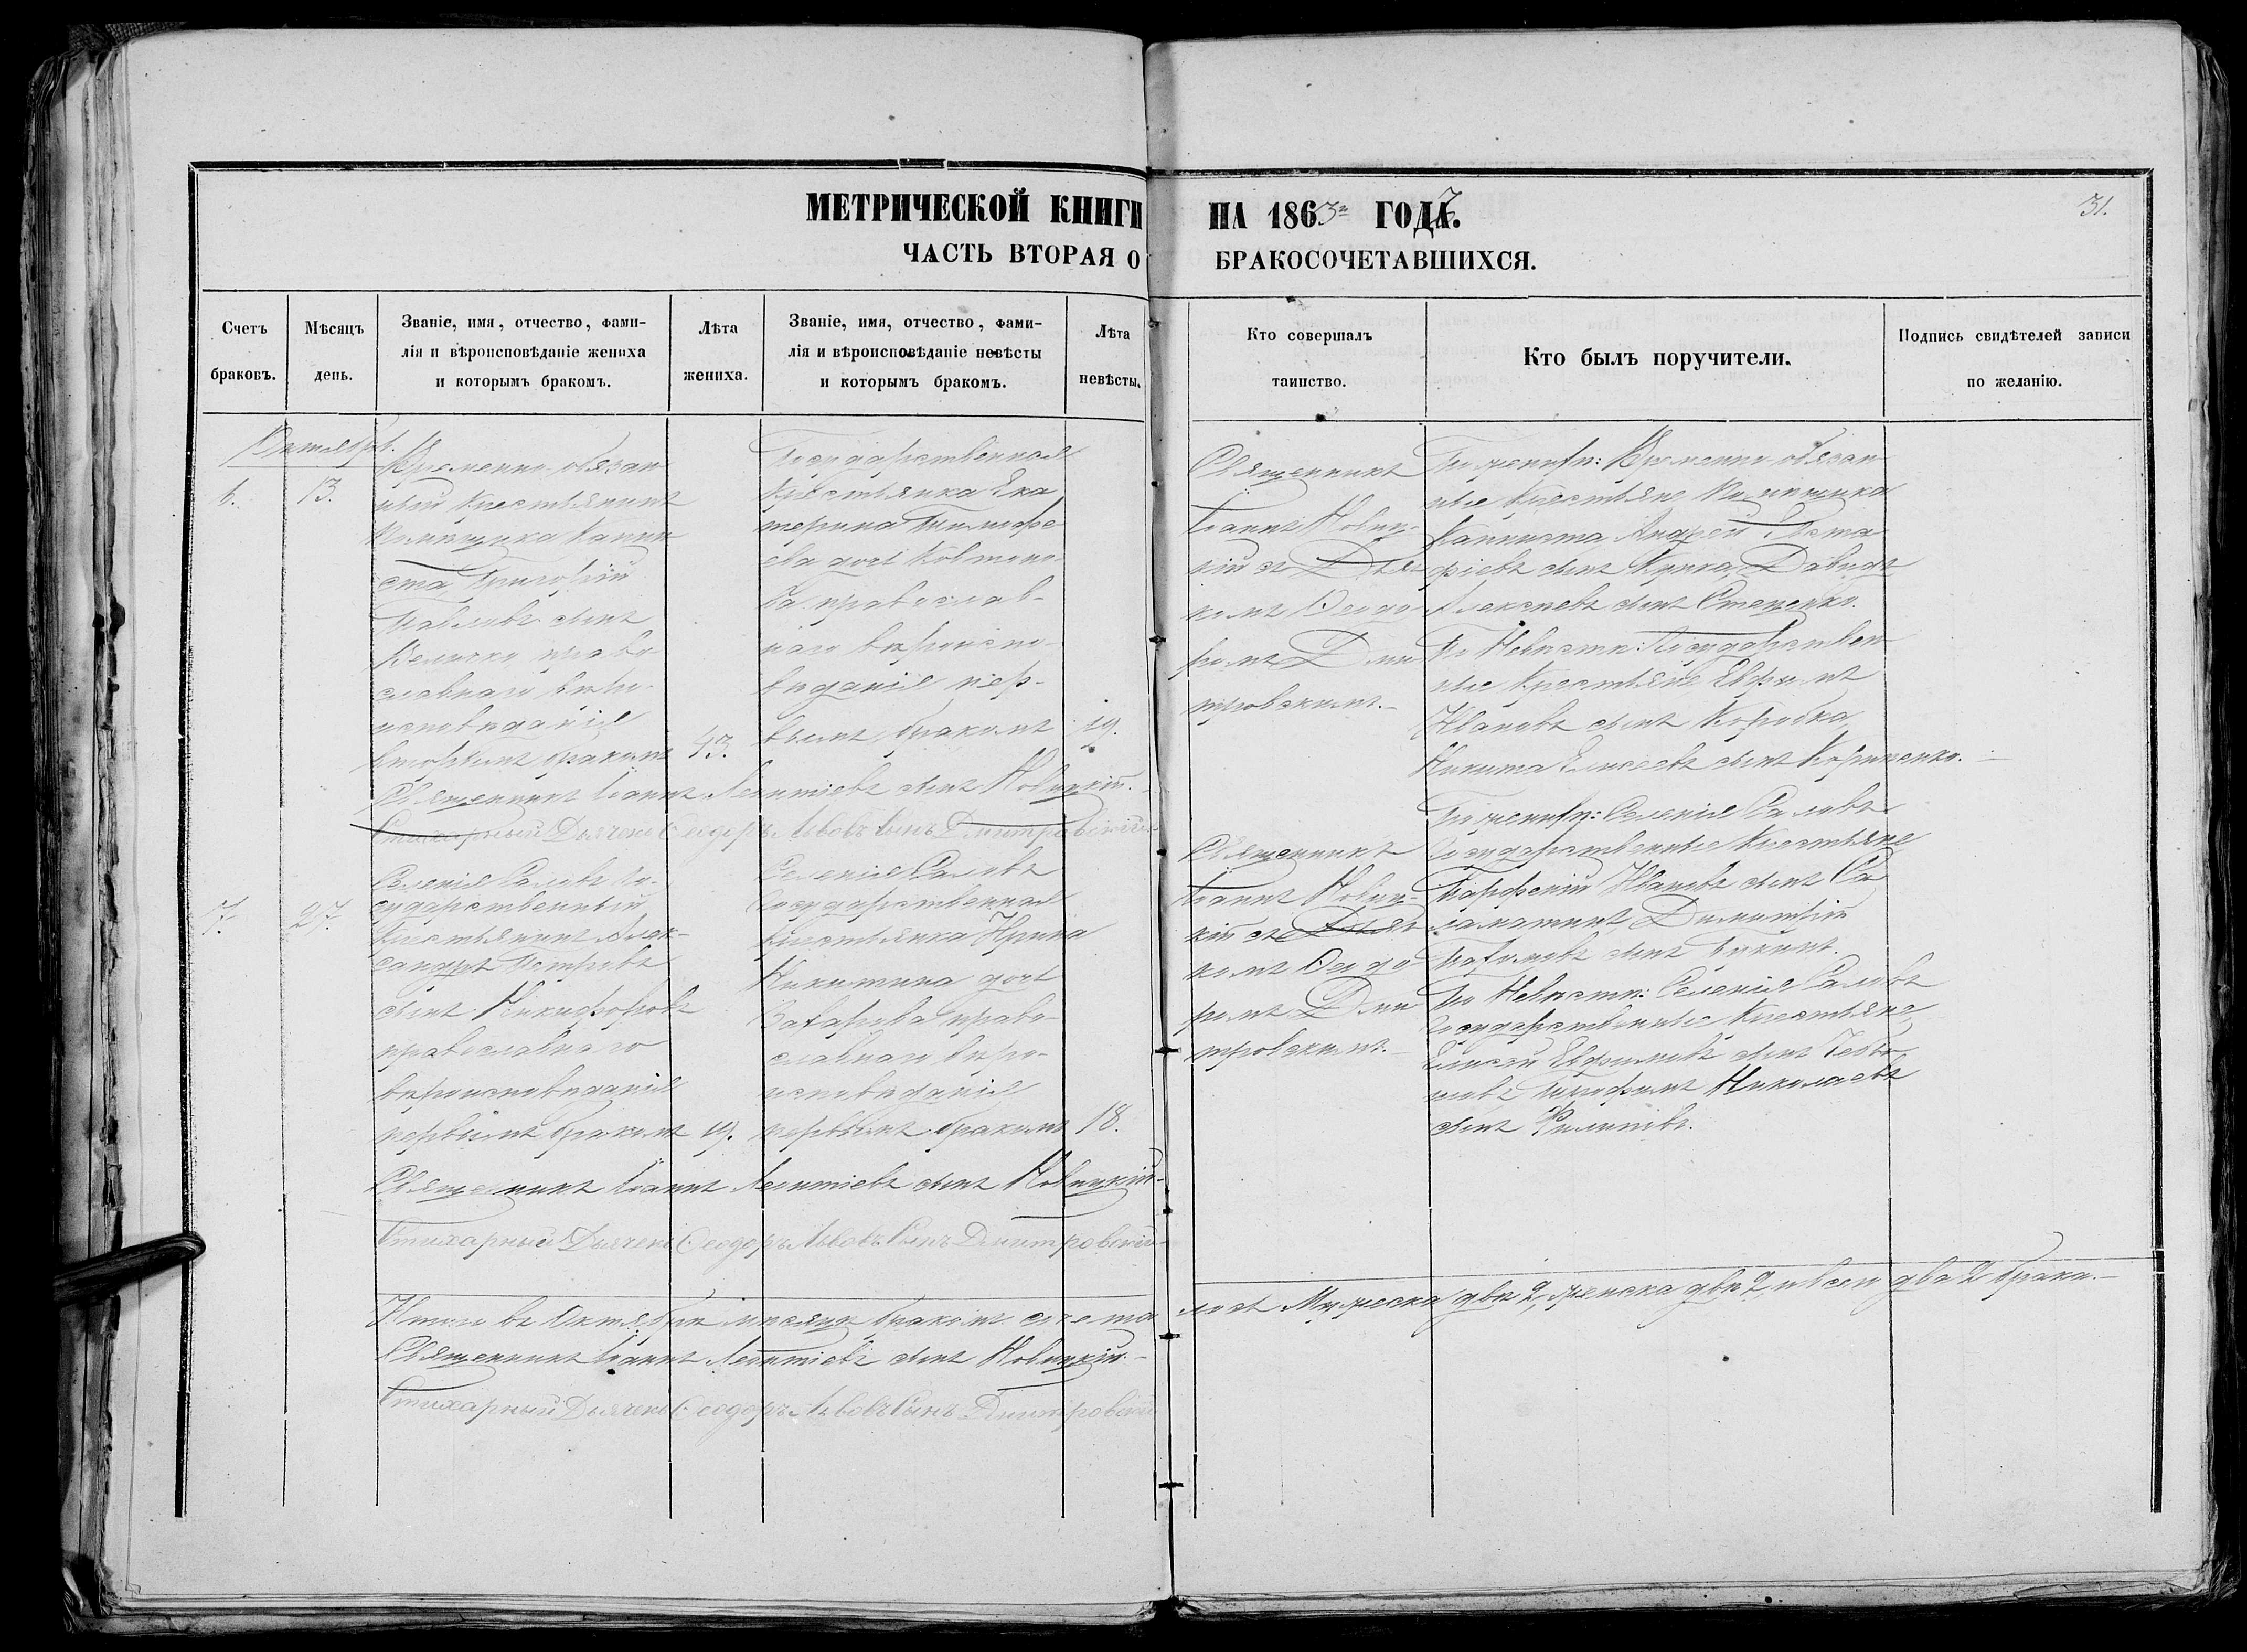 МЕТРИЧЕСКОЙ КНИГИ НА 1863й ГОДЪ.
31.
ЧАСТЬ ВТОРАЯ О БРАКОСОЧЕТАВШИХСЯ.
Счетъ браковъ.
Мѣсяцъ день.
Званіе, имя, отчество, фами-
лія и вѣроисповѣданіе жениха
и которымъ бракомъ.
Лѣта жениха.
Званіе, имя, отчество, фами-
лія и вѣроисповѣданіе невѣсты
и которымъ бракомъ.
Лѣта невѣсты.
Кто совершалъ
таинство.
Кто былъ поручители.
Подпись свидѣтелей записи
по желанію.
Октябрь.
6.
13.
Временно обязан
ный Крестьянинъ
Помѣщика Капни
ста Григорій
Павловъ сынъ
Величко право
славнаго вѣро
исповѣданія
вторымъ бракомъ
43.
Государственная
Крестьянка Ека
терина Тимофе
ева дочь
православ-
наго вѣроиспо-
вѣданія пер-
вымъ бракомъ
19.
Священникъ
Іоаннъ Новиц-
кій съ Дьяч
комъ Ѳеодо
ромъ Дми
тровскимъ.
По женихѣ: Временно обязан
ные Крестьяне Помѣщика
Капниста Андрей Еста
фіевъ сынъ Давидъ
Алексѣевъ сынъ Стеценко.
По Невѣстѣ: Государствен
ные Крестьяне Евфимъ
Ивановъ сынъ Коробка,
Никита Елисеевъ сынъ
Священникъ Іоаннъ Леонтіевъ сынъ Новицкій.
Стихарный Дьячекъ Ѳеодоръ Львовъ Сынъ Дмитровскій
7.
27.
Селенія Саловъ Го-
сударственный
Крестьянинъ Алек-
сандръ Петровъ
сынъ Никифоровъ
православнаго
вѣроисповѣданія
первымъ бракомъ
19.
Селенія Саловъ
Государственная
Крестьянка Ирина
Никитина дочь
Захарова право-
славнаго вѣро-
исповѣданія
первымъ бракомъ
18.
Священникъ
Іоаннъ Новиц-
кій съ Дьяч
комъ Ѳеодо
ромъ Дми
тровскимъ.
По женихѣ: Селенія Саловъ
Государственные Крестьяне
Парфеній Ивановъ сынъ Са
ламатинъ Димитрій
сынъ
По Невѣстѣ: Селенія Саловъ
Государственные Крестьяне,
Елисей Евфимовъ сынъ
Николаевъ
сынъ Филиповъ.
Священникъ Іоаннъ Леонтіевъ сынъ Новицкій
Стихарный Дьячекъ Ѳеодоръ Львовъ Сынъ Дмитровскій
Итого въ Октябрѣ мѣсяцѣ бракомъ сочета лось Мужеска двѣ 2, женска двѣ 2, и всего два 2 брака.
Священникъ Іоаннъ Леонтіевъ сынъ Новицкій.
Стихарный Дьячекъ Ѳеодоръ Львовъ Сынъ Дмитровскій